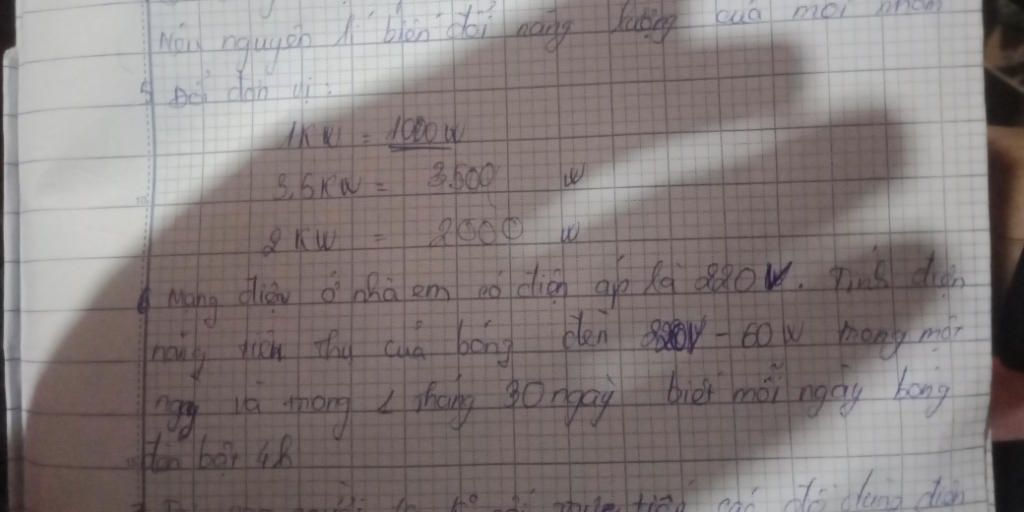 Nêu nguyên lí biến đổi năng lượng của mỗi nhóm
5 Đổi đơn vị:
1KW = 1000W
3,5KW = 3.500 W
2KW = 2000 W
6 Mạng điện ở nhà em có điện áp là 220V. Tính điện
năng tiêu thụ của bóng đèn 220V - 60W trong một
ngày và trong 1 tháng 30 ngày biết mỗi ngày bóng
đèn bật 4h
các đồ dùng điện